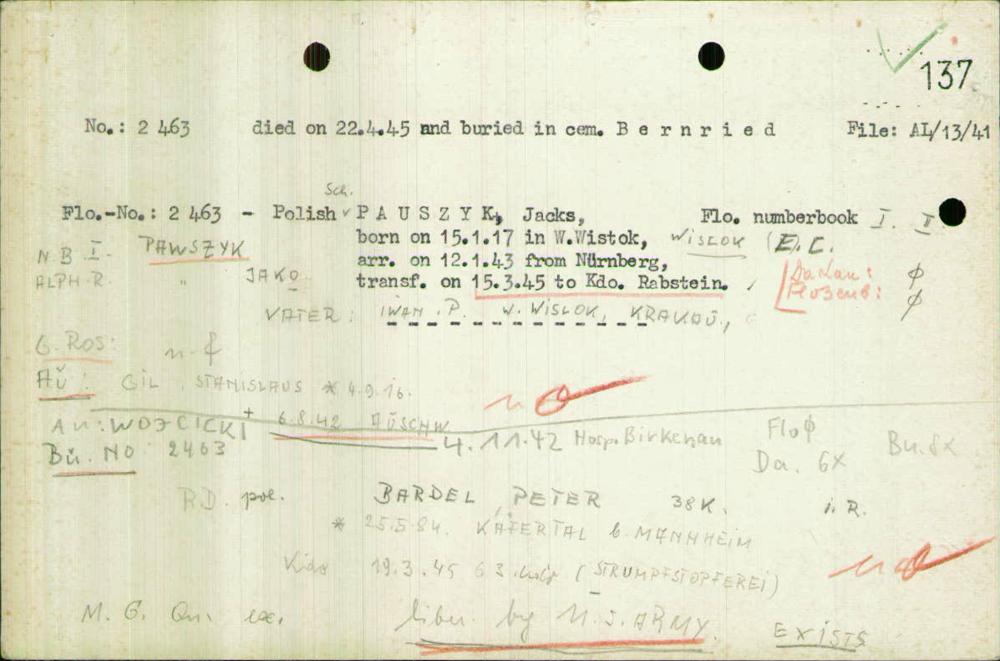 137
No.: 2 463 died on 22.4.45 and buried in cem. B e r n r i e d File: AL/13/41
Sch.
Flo.-No.: 2 463 - Polish P A U S Z Y K, Jacks, Flo. numberbook I. II.
born on 15.1.17 in W.Wistok, WISLOK (E.C.
N.B I. PAWSZYK
arr. on 12.1.43 from Nürnberg,
ALPH-R. " JAKO transf. on 15.3.45 to Kdo. Rabstein.
Dachau: φ
Flossenb: φ
VATER: IWAN P. W. WISLOK, KRAKAU,
G. ROS: n.f
AU: GIL, STANISLAUS * 4.9.16. no
AU: WOJCICKI + 6.8.42 AUSCHW.
4.11.42 Hosp. Birkenau Floφ Bu. 8x
Bu. NO 2463 Da. 6x
RD. pol. BARDEL, PETER 38K. i. R.
* 25.5.84. KÄFERTAL b. MANNHEIM
Kdo 19.3.45 63 (STRUMPFSTOPFEREI) no
M. G. Qu. ex. liber. by U.S. ARMY. EXISTS